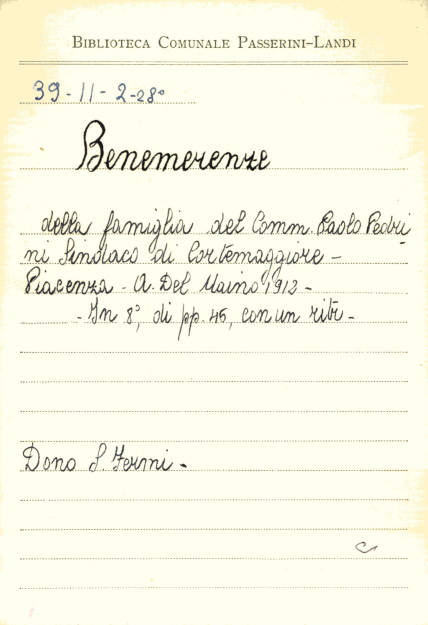 BIBLIOTECA COMUNALE PASSERINI-LANDI
39-11-2-28°
Benemerenze
della famiglia del Comm. Paolo Pedri
ni Sindaco di Cortemaggiore -
Piacenza - A. Del Maino 1912 -
- In 8°, di pp. 45, con un ritr -
Dono S. Fermi -